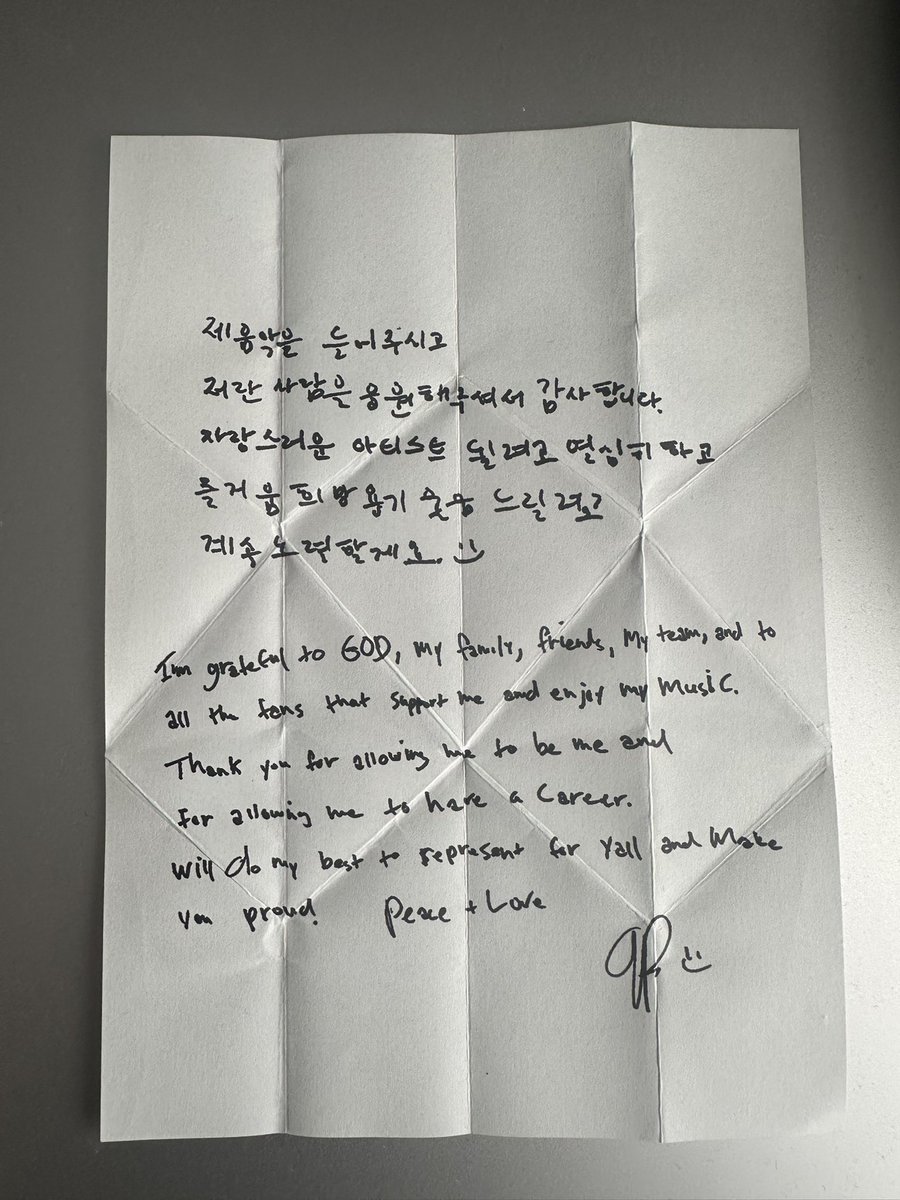 제음악을 들어주시고
저란 사람을 응원해주셔서 감사합니다.
자랑스러운 아티스트 될려고 열심히하고
즐거움 희망 용기 느릴려고
계속 노력할게요. :)
I'm grateful to GOD, my family, friends, My team, and to
all the fans that support me and enjoy my Music.
Thank you for allowing me to be me and
for allowing me to have a Career.
Will do my best to represent for Yall and Make
you proud! Peace + Love
:)